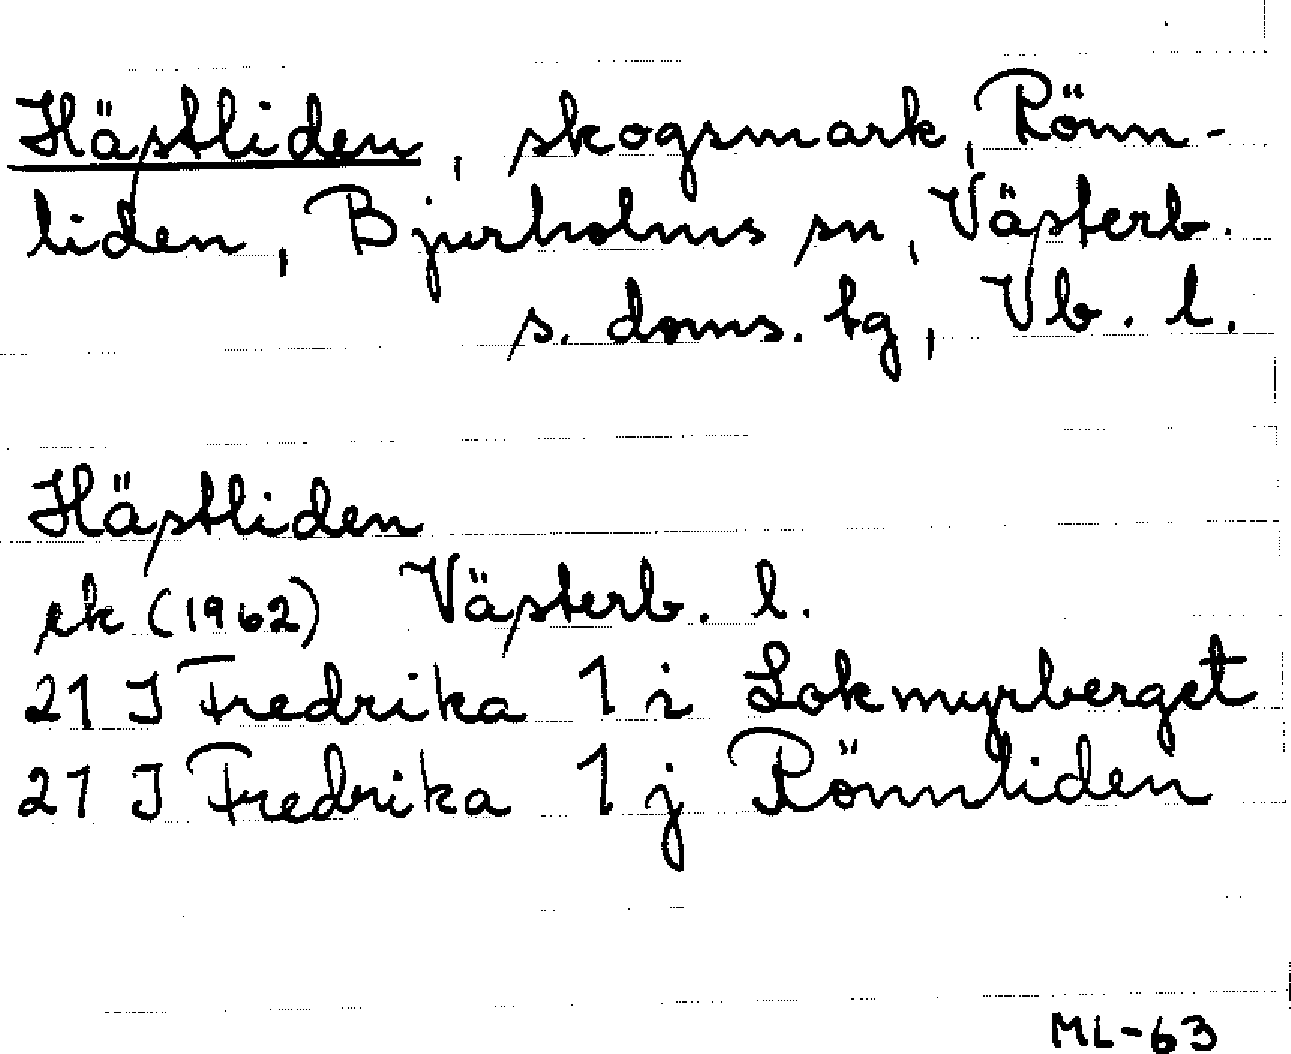 Hästliden, skogsmark, Rönn-
liden, Bjurholms sn, Västerb.
s. doms. tg, Vb. l.
Hästliden
ek (1962) Västerb. l.
21 J Fredrika 1 i Lokmyrberget
21 J Fredrika 1 j Rönnliden
ML-63